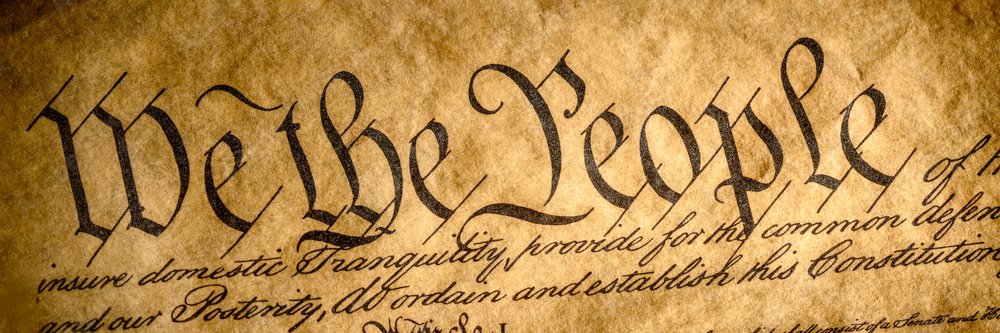 We the People of
insure domestic Tranquility, provide for the common defen
and our Posterity, do ordain and establish this Constitution
of a Senate and